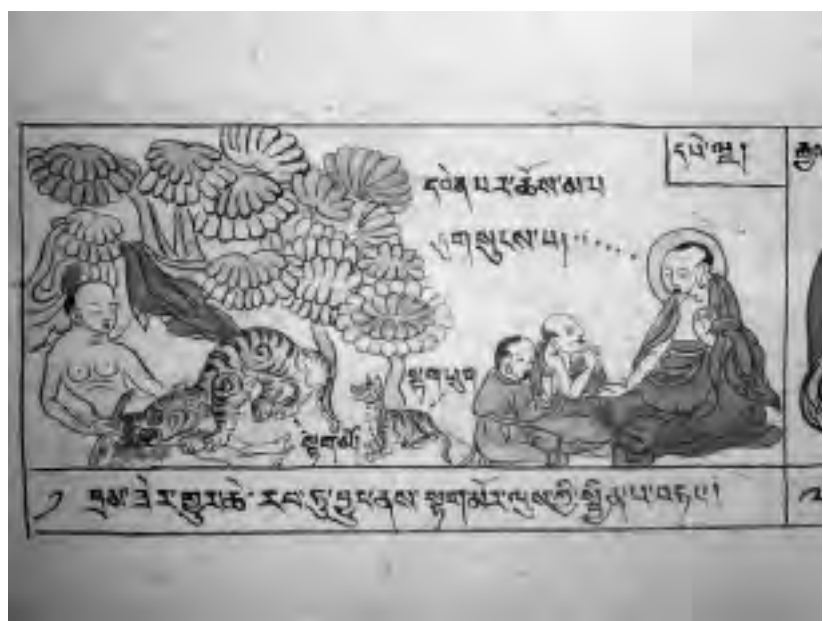 དཔེ་ལྔ།
དབེན་པར་ཆོས་མར།
གསུངས་པ།
སྟག་ཕྲུག
སྟག་མོ།
༡ བྲམ་ཟེར་གྱུར་ཚེ་རབ་ཏུ་བྱུང་ནས་སྟག་མོར་ལུས་ཀྱི་སྦྱིན་པ་བཏང༌།